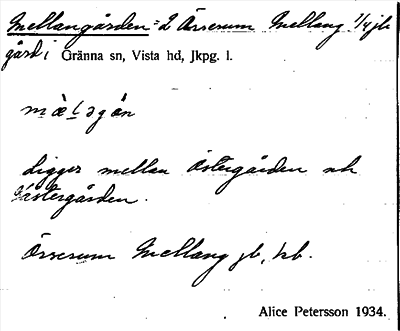 Mellangården = 2 Örserum Mellang. 1/4 jb
gård i Gränna sn, Vista hd, Jkpg. l.
Ligger mellan Östergården och
Västergården.
Örserum Mellang jb, kb.
Alice Petersson 1934.